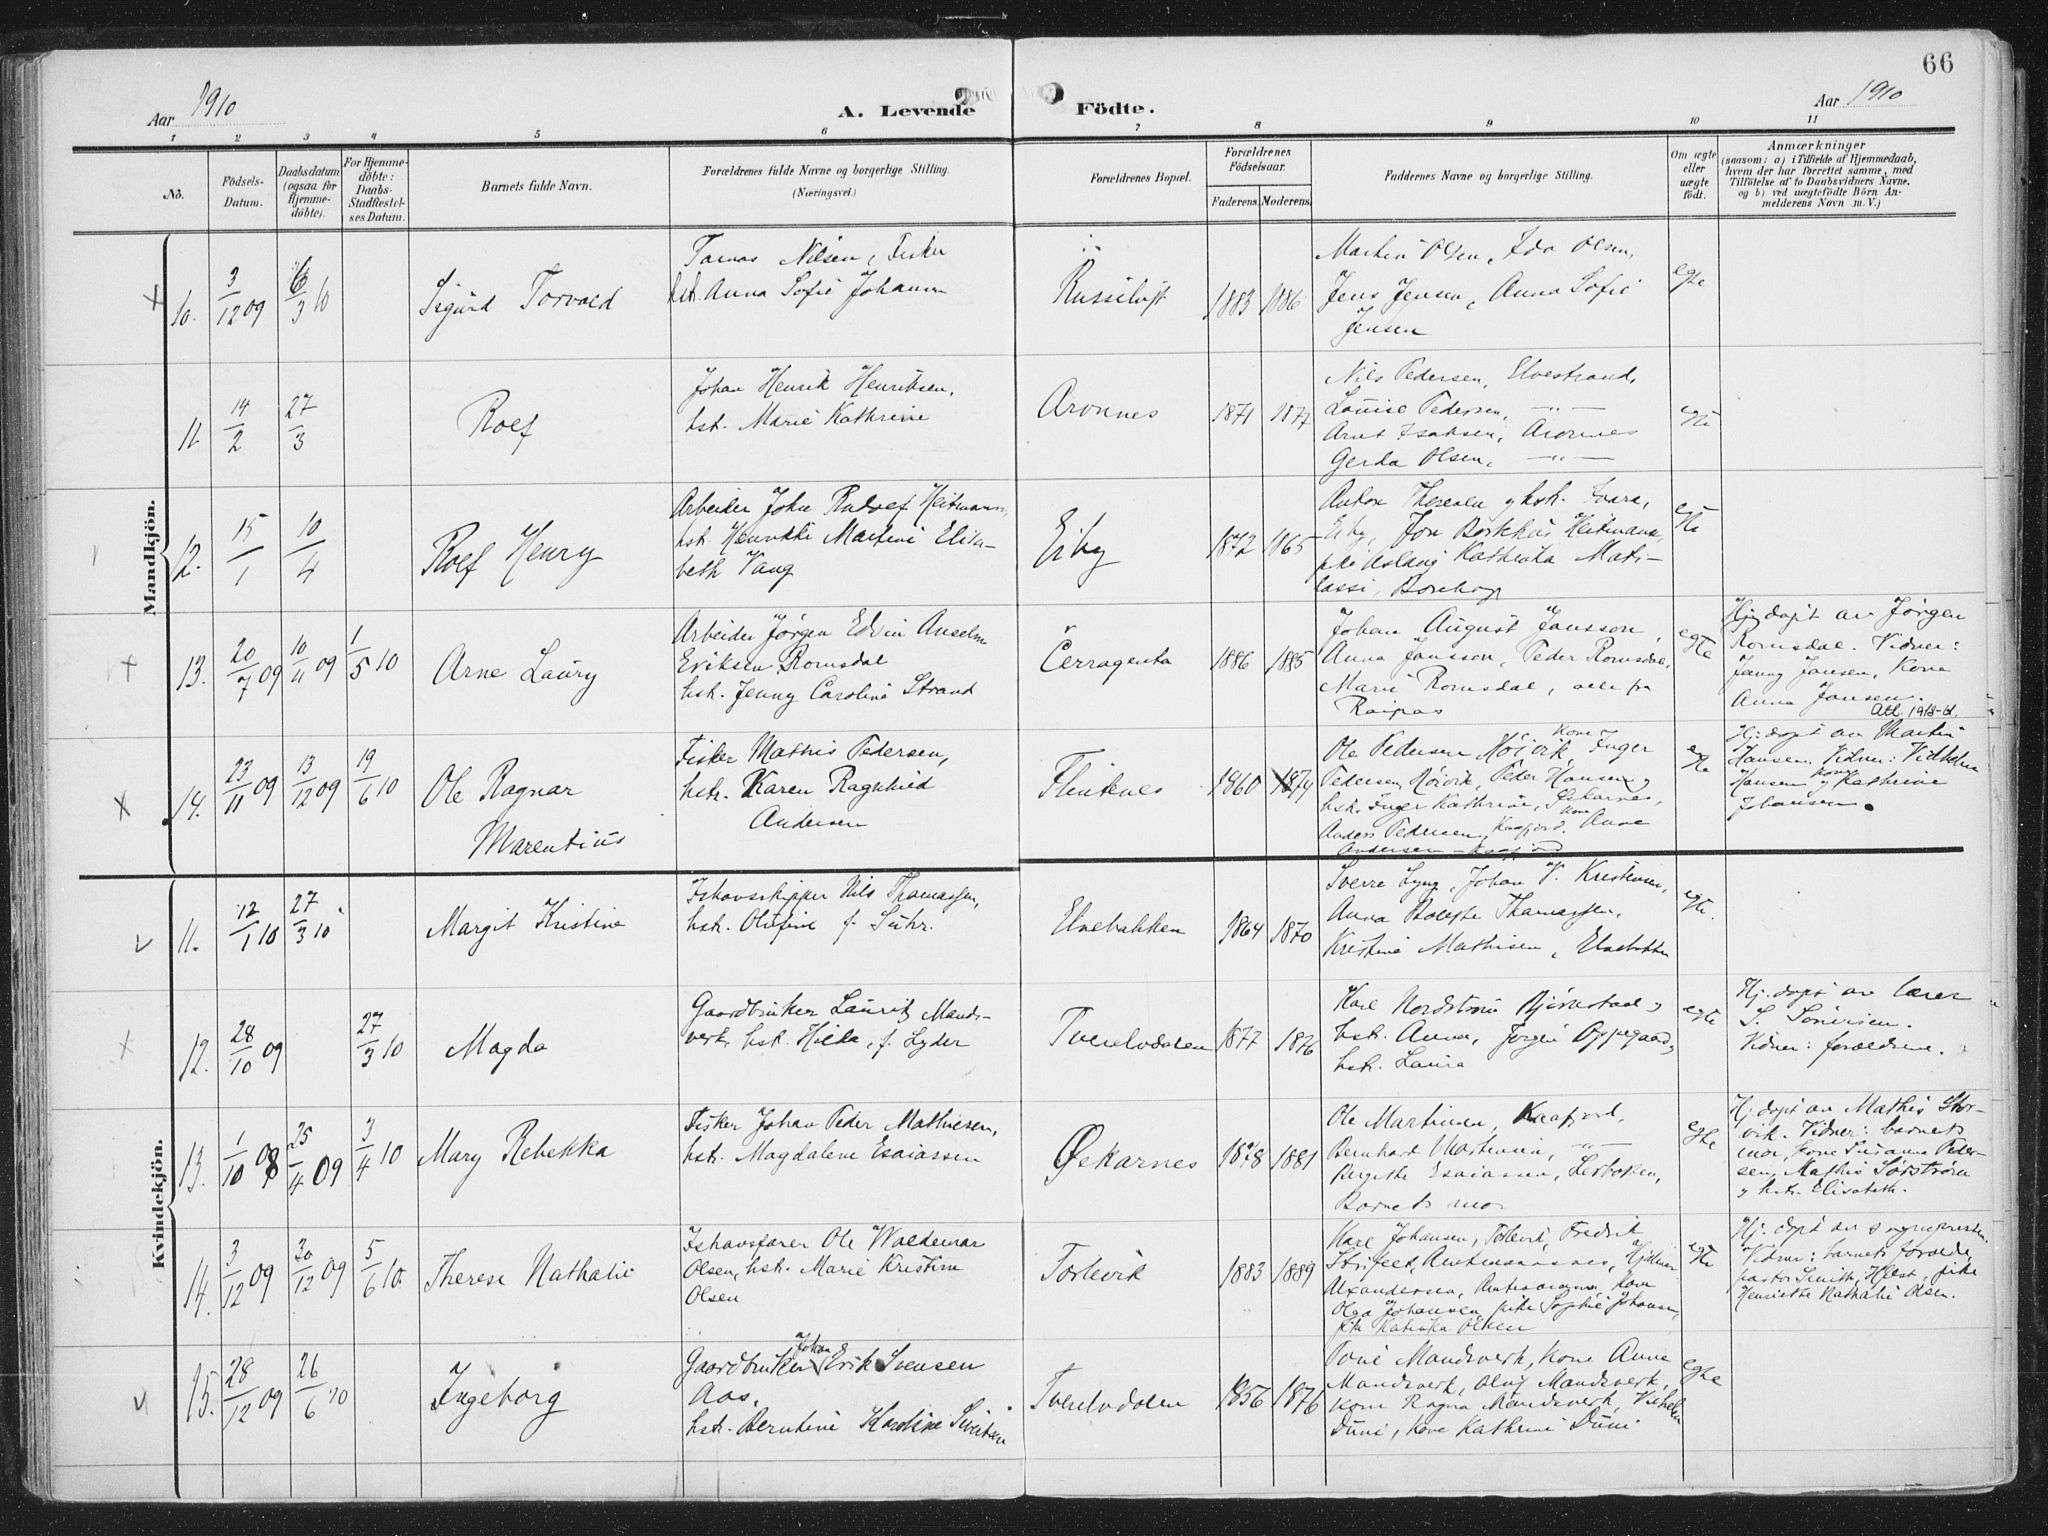 66
Aar 1910
A. Levende
Födte.
Aar 1910
1 2 3 4 5 6 7 8 9 10 11
No.
Födsels-
Datum.
Daabsdatum
(ogsaa for
Hjemme-
döbte).
For Hjemme-
döbte:
Daabs-
Stadfæstel-
ses Datum.
Barnets fulde Navn.
Forældrenes fulde Navne og borgerlige Stilling.
(Næringsvei.)
Forældrenes Bopæl.
Forældrenes
Födselsaar.
Faderens.
Moderens.
Faddernes Navne og borgerlige Stilling.
Om ægte
eller
uægte
födt.
Anmærkninger
(saasom: a) i Tilfælde af Hjemmedaab,
hvem der har forrettet samme, med
Tilföielse af to Daabsvidners Navne,
og b) ved uægtefödte Börn An-
melderens Navn m. V.)
Mandkjön.
10. 3/12 09 6/3 10
Sigurd Torvald
Nilsen, Fisker
hst. Anna Sofie
1883 1886
Martin Olsen, Ida Olsen,
Jens Jensen, Anna Sofie
Jensen
egte
11. 14/2 27/3
Rolf
Johan Henrik Henriksen,
hst. Marie Kathrine
Aronnes
1871 1877
Nils Pedersen, Elvestrand,
Louise Pedersen, —"—
Arnt Isaksen, Aronnes
Gerda Olsen, —"—
egte
12. 15/1 10/4
Rolf Henry
Arbeider John Rudolf Heitmann,
hst. Henrikke Martine Elisa-
beth Vang
Eiby
1872 1865
hst.
Eiby, Heitmann,
pike Aslaug Kathinka
egte
13. 20/7 09 10/11 09 1/5 10
Arne Laury
Arbeider Jørgen Edvin Anselm
Eriksen Romsdal
hst. Jenny Caroline Strand
Cerragenta
1886 1885
Johan August Jansson,
Anna Jansson, Peder Romsdal,
Marie Romsdal, alle fra
Raipas
egte
Hj. døpt av Jørgen
Romsdal. Vidner:
Jenny Jansen, Kone
Anna Jansen.
14. 23/11 09 13/12 09 19/6 10
Ole Ragnar
Marentius
Fisker Mathis Pedersen,
hst. Karen Ragnhild
Andersen
Flintnes
1860 1874
Ole Pedersen Møivik, Kone Inger
Pedersen, Peder Hansen og
hst. Inger Kathrine, Øskarnes,
Anders Pedersen, Kaafjord, Kone Anne
Andersen – Kaafjord
egte
Att. 1918
Hj. døpt av Martin
Hansen. Vidner: Vilhelm
Hansen og kone Kathrine
Johansen.
Kvindekjön.
11. 12/1 10 27/3 10
Margit Kristine
Ishavsskipper Nils Thomassen,
hst. Olufine f. Suhr.
Elvebakken
1864 1870
Sverre Lyng, Johan V. Kristensen,
Anna Bolette Thomassen,
Kristine Mathisen, Elvebakken
egte.
12. 28/10 09 27/3 10
Magda
Gaardbruker Lauritz Mands-
verk, hst. Hilda, f. Lyder
Tverelvdalen
1877 1876
Karl Nordström Bjørnstad og
hst. Anna, Jørgen Oppegaard og
hst. Laura
egte
Hj. døpt av lærer
S. Sivertsen.
Vidner: forældrene.
13. 1/10 08 25/4 09 3/4 10
Mary Rebekka
Fisker Johan Peder Mathisen,
hst. Magdalene Esaiassen
Øskarnes
1878 1881
Ole Martinsen, Kaafjord,
Bernhard Martinsen, —"—
Birgitte Esaiassen, Lerbotten,
Barnets mor
egte
Hj. døpt av Mathis Stor-
vik. Vidner: barnets
mor, kone Susanna Peder-
sen, Mathis Sørstrøm
og hst. Elisabeth.
14. 3/12 09 30/12 09 5/6 10
Therese Nathalie
Ishavsfarer Ole Waldemar
Olsen, hst. Marie Kristine
Olsen
1883 1889
Karl Johansen, Fredrik
Hjalmar
kone
Olga Johansen, pike Sophie Johansen,
pike Katinka Olsen
egte
Hj. døpt av sognepresten.
Vidner: barnets forældre,
pastor Smith, pike
Henriette Nathalie Olsen.
15. 28/12 09 26/6 10
Ingeborg
Gaardbruker Johan Erik Svensen
Aas,
hst. Berntine Karoline Sivertsen
Tverelvdalen
1856 1876
Tove Mandsverk, Kone Anna
Mandsverk, Oluf Mandsverk,
kone Ragna Mandsverk, Vilhelm
Duni, Kone Kathrine Duni
egte